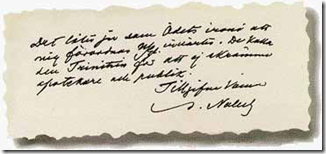 Det låter ju som Ödets ironi att
mig förordnas N/gl. invärtes. De kalla
det Trinitrin för att ej skrämma
apotekare och publik.
Tillgifne Vännen
A. Nobel